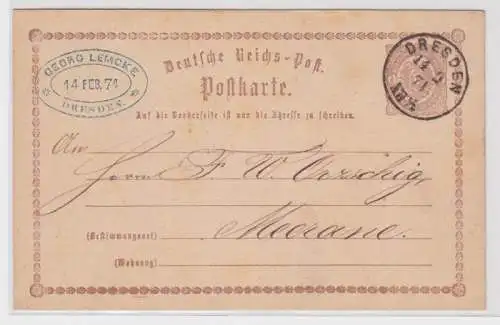 GEORG LEMCKE
14 FEB. 74
DRESDEN.
Deutsche Reichs-Post.
Postkarte.
DRESDEN
14 2
74
Auf die Vorderseite ist nur die Adresse zu schreiben.
An
Herrn F. W.
(Bestimmungsort)
Meerane.
(Wohnung)